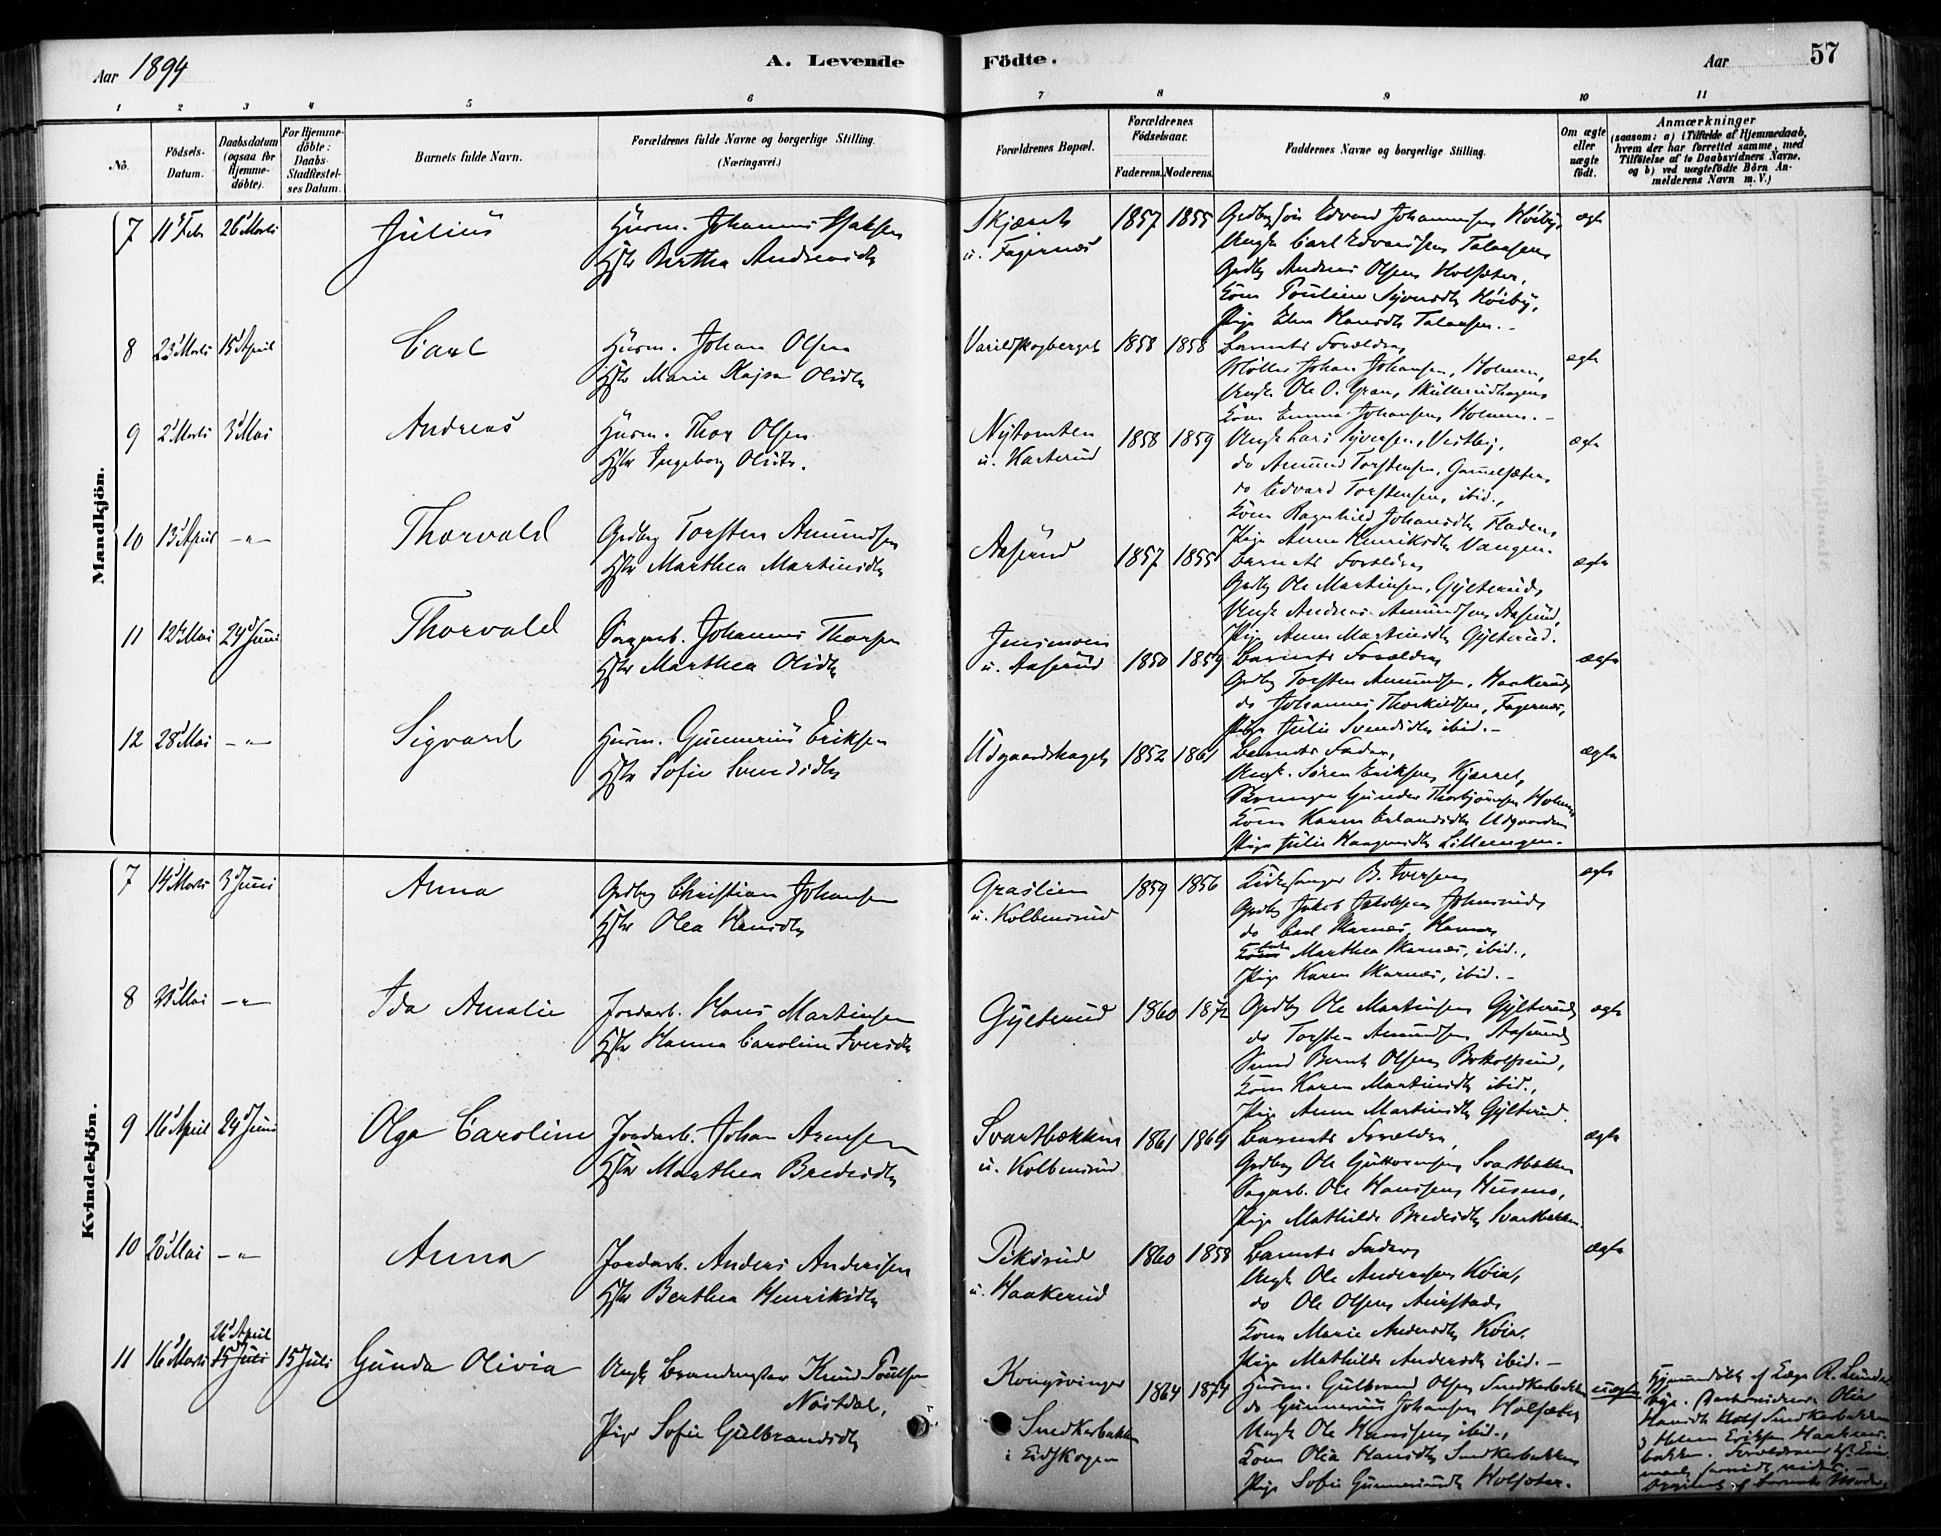 Aar 1894
A. Levende
Födte.
Aar
57
1 2 3 4 5 6 7 8 9 10 11
No.
Födsels-
Datum.
Daabsdatum
(ogsaa for
Hjemme-
döbte).
For Hjemme-
döbte:
Daabs-
Stadfæstel-
ses Datum.
Barnets fulde Navn.
Forældrenes fulde Navne og borgerlige Stilling.
(Næringsvei.)
Forældrenes Bopæl.
Forældrenes
Födselsaar.
Faderens. Moderens.
Faddernes Navne og borgerlige Stilling.
Om ægte
eller
uægte
født.
Anmærkninger
(saasom: a) i Tilfælde af Hjemmedaab,
hvem der har forrettet samme, med
Tilföielse af to Daabsvidners Navne,
og b) ved uægtefödte Börn An-
melderens Navn m. V.)
Mandkjön.
7 11 Febr 26 Marts Julius
Husm. Johannes Isaksen
Hstr Berthea Andreasdtr
Skjæset
u. Fagernæs
1857 1855
Grdbrsön Edvard Johannesen Höiby,
Ungk. Carl Edvardsen Talaasen,
Grdbr Andreas Olsen Holsæter,
Kone Pauline Syversdtr Höiby,
Pige Elen Hansdtr Talaasen.
ægte
8 23 Marts 15 April Carl
Husm. Johan Olsen
Hstr Marie Kajsa Olsdtr
Varildskogberget 1858 1858
Barnets Forældre,
Möller Johan Johansen, Holmen,
Ungk. Ole O. Gran, Mullerudhagen,
Kone Emma Johansen, Holmen.
ægte
9 2 Marts 3 Mai Andreas
Husm. Thor Olsen
Hstr Ingeborg Olsdtr.
Nytomten
u. Karterud
1858 1859
Ungk. Lars Syversen, Vestby,
do Amund Torstensen, Gamelsæter,
do Edvard Torstensen, ibid.,
Kone Ragnhild Johansdtr Fladen,
Pige Anne Henriksdtr Vangen.
ægte
10 13 April -"- Thorvald
Grdbr Torsten Amundsen
Hstr Marthea Martinsdtr
Aaserud 1857 1855
Barnets Forældre,
Grdbr Ole Martinsen, Gylterud,
Ungk Andreas Amundsen, Aaserud,
Pige Anne Martinsdtr Gylterud.
ægte
11 12 Mai 24 Juni Thorvald
Sagarb. Johannes Thorsen
Hstr Marthea Olsdtr
Jensmoen
u. Aaserud
1850 1859
Barnets Forældre,
Grdbr Torsten Amundsen, Haakerud,
do Johannes Thorkildsen, Fagernæs,
Pige Julie Svendsdtr ibid.
ægte
12 28 Mai -"- Sigvard
Husm. Gunnerius Eriksen
Hstr Sofie Svendsdtr
Udgaardshaget 1852 1861
Barnets Fader,
Ungk. Sören Eriksen, Kjærret,
Gunder Thorbjörnsen Holmen
Kone Karen Erlandsdtr Udgaarden
Pige Julie Haagensdtr Lilleengen.
ægte
Kvindekjön.
7 14 Marts 3 Juni Anna
Grdbr Christian Johansen
Hstr Olea Hansdtr
Graslien
u. Kolbensrud
1859 1856
Kirkesanger B. Iversen
Grdbr Jakob Jakobsen Johnsrud,
do Carl Skarnæs, Hamar
Marthea Skarnæs, ibid.,
Pige Karen Skarnæs, ibid.
ægte
8 21 Mai -"- Ida Amalie
Jordarb. Hans Martinsen
Hstr Hanna Caroline Iversdtr
Gylterud 1860 1872
Grdbr Ole Martinsen Gylterud,
do Torsten Amundsen Aaserud,
Smed Bernt Olsen Botolfsrud,
Kone Karen Martinsdtr ibid.,
Pige Anne Martinsdtr Gylterud.
ægte
9 16 April 24 Juni Olga Caroline
Jordarb. Johan Arnesen
Hstr Marthea Bredesdtr
Svartbækken
u. Kolbensrud
1861 1864
Barnets Forældre,
Grdbr Ole Guttormsen Svartbækken
Sagarb. Ole Hanssen, Husmo,
Pige Mathilde Bredesdtr Svartbækken.
ægte
10 20 Mai -"- Anna
Jordarb. Anders Andersen
Hstr Berthea Henriksdtr
Piksrud
u. Haakerud
1860 1858
Barnets Fader,
Ungk Ole Andersen Köia,
do Ole Olsen Aurstad,
Kone Marie Andersdtr Köia,
Pige Mathilde Andersdtr ibid.
ægte
11 16 Marts 26 April
15 Juli 15 Juli Gunda Olivia
Ungk Brandmester Knud Poulsen
Nöstdal,
Pige Sofie Gulbrandsdtr
Kongsvinger
Snedkerbakken
i Eidskogen
1864 1874
Husm. Gulbrand Olsen Snedkerbakken
do Gunnerius Johansen Holsæter,
Ungk Ole Hanssen, ibid.,
Kone Olia Hansdtr Snedkerbakken
Pige Sofie Gunneriusdtr Holsæter.
uægte
Hjemmedöbt af Læge R. Lund
Olia
Hansdtr Snedkerbakken
Helene Eriksen Haakens-
bakken. Forældrene